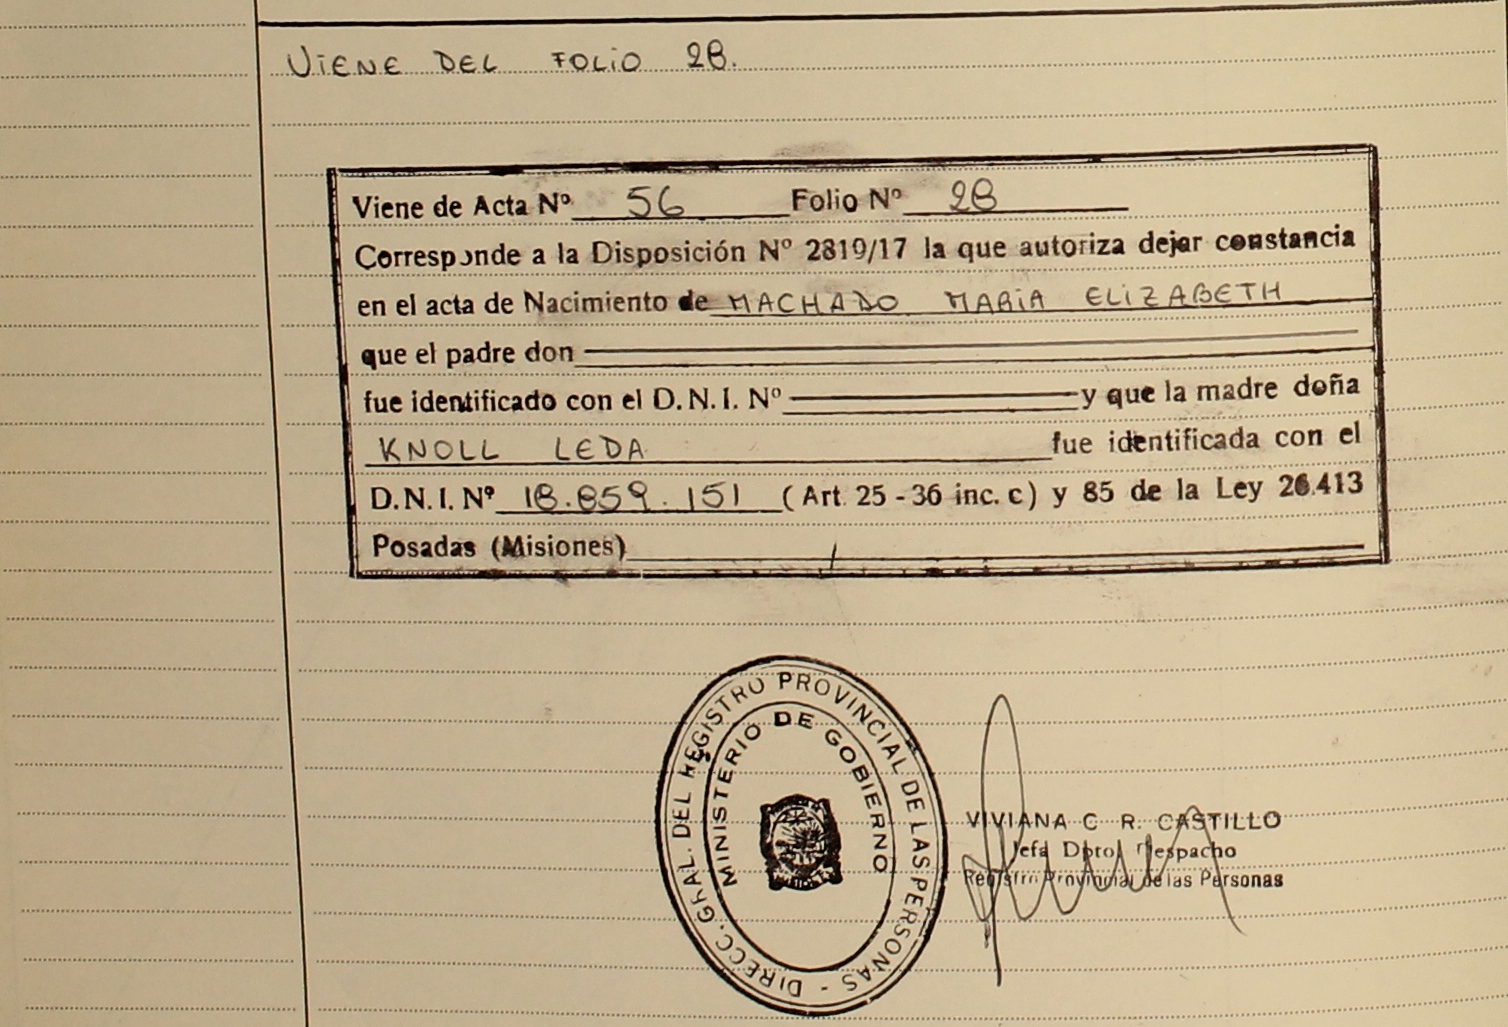 VIENE DEL FOLIO 28.
Viene de Acta Nº 56 Folio Nº 28
Corresponde a la Disposición Nº 2819/17 la que autoriza dejar constancia
en el acta de Nacimiento de MACHADO MARIA ELIZABETH
que el padre don
fue identificado con el D.N.I. Nº y que la madre doña
KNOLL LEDA fue identificada con el
D.N.I. Nº 18.859.151 (Art. 25 - 36 inc. c) y 85 de la Ley 26.413
Posadas (Misiones)
DIRECC. GRAL. DEL REGISTRO PROVINCIAL DE LAS PERSONAS -
MINISTERIO DE GOBIERNO
VIVIANA C. R. CASTILLO
Jefa Dpto. Despacho
Registro Provincial de las Personas